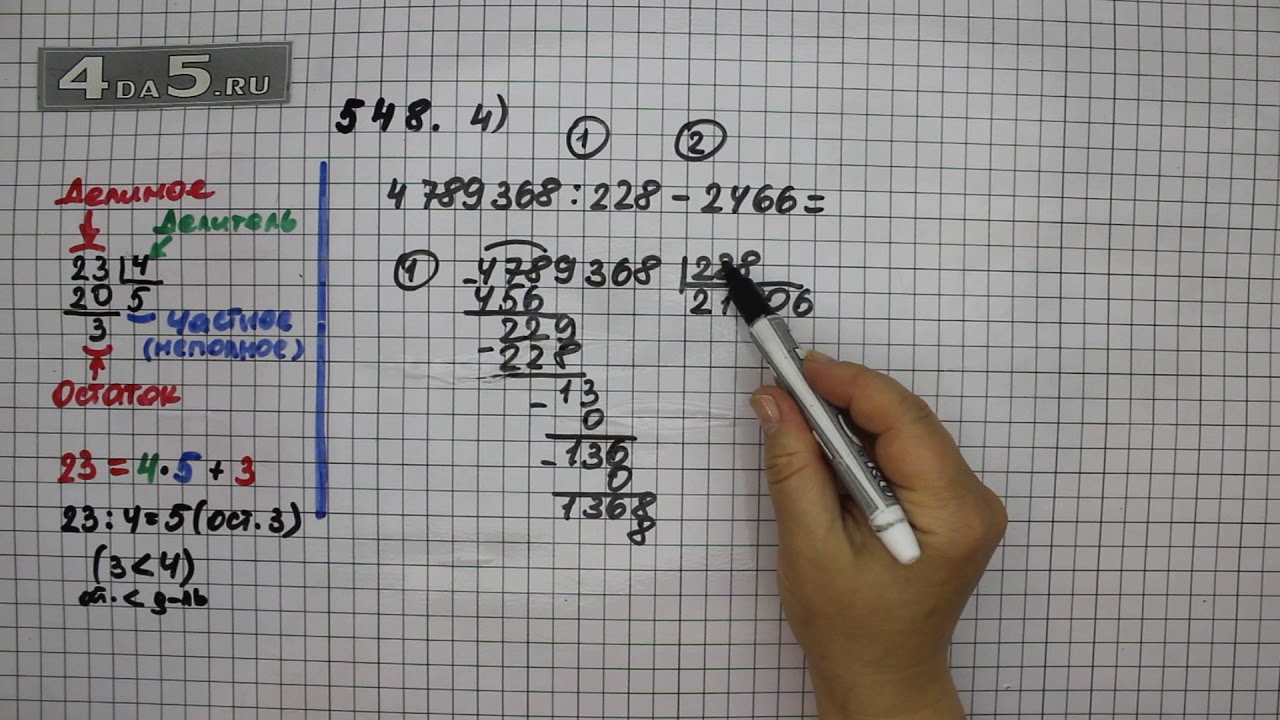 4DA5.RU
548. 4)
1 2
4 789 368 : 228 - 2466 =
Делимое
Делитель
23 4
20 5
3
частное
(неполное)
Остаток
23 = 4 · 5 + 3
23 : 4 = 5 (ост. 3)
(3 < 4)
ост. < д-ль
1 - 4789368 228
456 21 06
229
- 228
- 13
0
- 136
0
1368
8